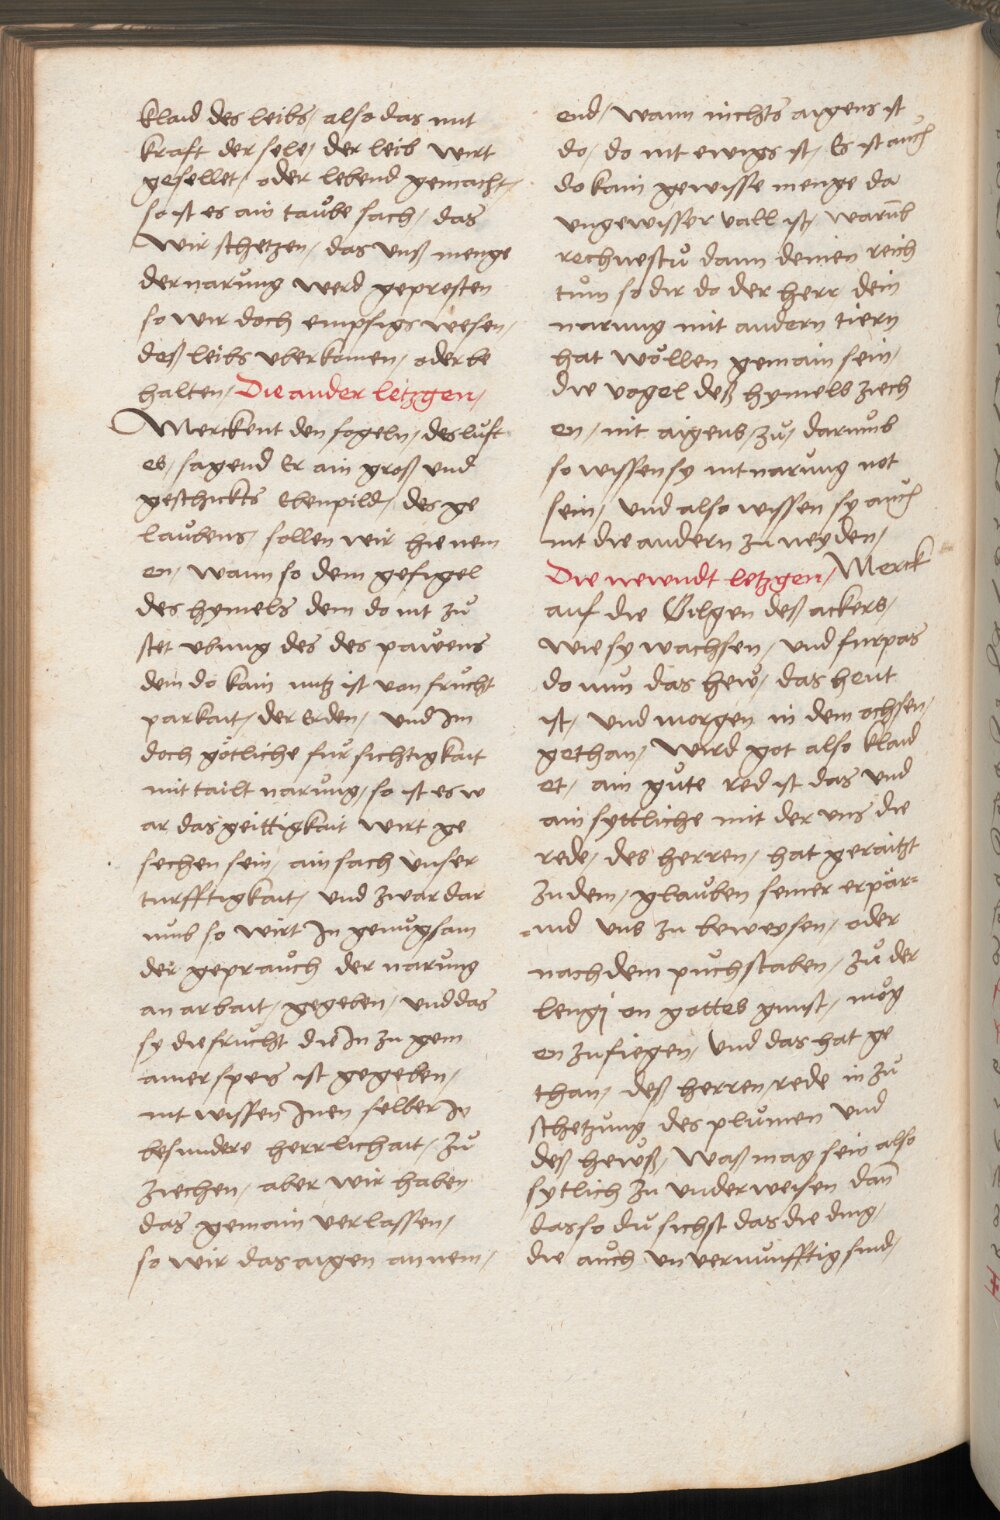 klaid des leibs, also das mit
kraft der sele, der leib wirt
gesellet, oder lebend gemacht,
so ist es ain taube sach, das
wir schetzen, das unß menge
der narung werd gepresten
so wir doch empsigs wesen,
deß leibs uberkomen, oder be
halten, Die ander letzgen,
Merckent den fogeln, des luft
es, sagend Er ain groß und
geschickts Ebenpild, des ge
laubens, sollen wir hie nem
en, wann so dem gefigel
des hymels dem do nit zů
stet ubung des des pawens
dem do kain nutz ist von frucht
parkait, der Erden, und Im
doch götliche fürsichtigkait
mittailt narung, so ist es w
ar das geittigkait wirt ge
sechen sein, ain sach unser
turfftigkait, und zwar dar
umb so wirt In genůgsam
der geprauch der narung
an arbait, gegeben, und das
sy die frucht die In zu gem
ainer speis ist gegeben,
nit wissen Inen selber In
besundere herrlichait, zů
ziechen, aber wir haben
das gemain verlassen,
so wir das aigen annem,
end, wann nichts aigens ist
do, do nit ewigs ist, Es ist auch
do kain gewisse menge da
ungewisser vall ist, warūb
rechnestu dann deinen reich
tum so dir do der herr dein
narung mit andern tiern
hat wöllen gemain sein,
die vogel deß hymels ziech
en, nit aigens, zů, darumb
so wissen sy nit narung not
sein, und also wissen sy auch
nit die andern zu neyden,
Die newndt letzgen, Merck
auf die Gilgen deß ackers,
wie sy wachsen, und furpas
do nun das hew, das heut
ist, und morgen in dem ochsen,
gethan, wird got also klaid
et, ain gůte red ist das und
ain syttliche mit der uns die
rede, des herren, hat geraitzt
zu dem, glauben seiner erpär=
md uns zu beweysen, oder
nach dem puchstaben, zů der
lengj on gottes gunst, mög
en zufiegen, und das hat ge
than, deß herren rede in zů
schetzung des plumen und
deß hewß, waß mag sein also
sytlich zu underweisen dañ
das so du sichst das die ding,
die auch unvernunfftig sind,